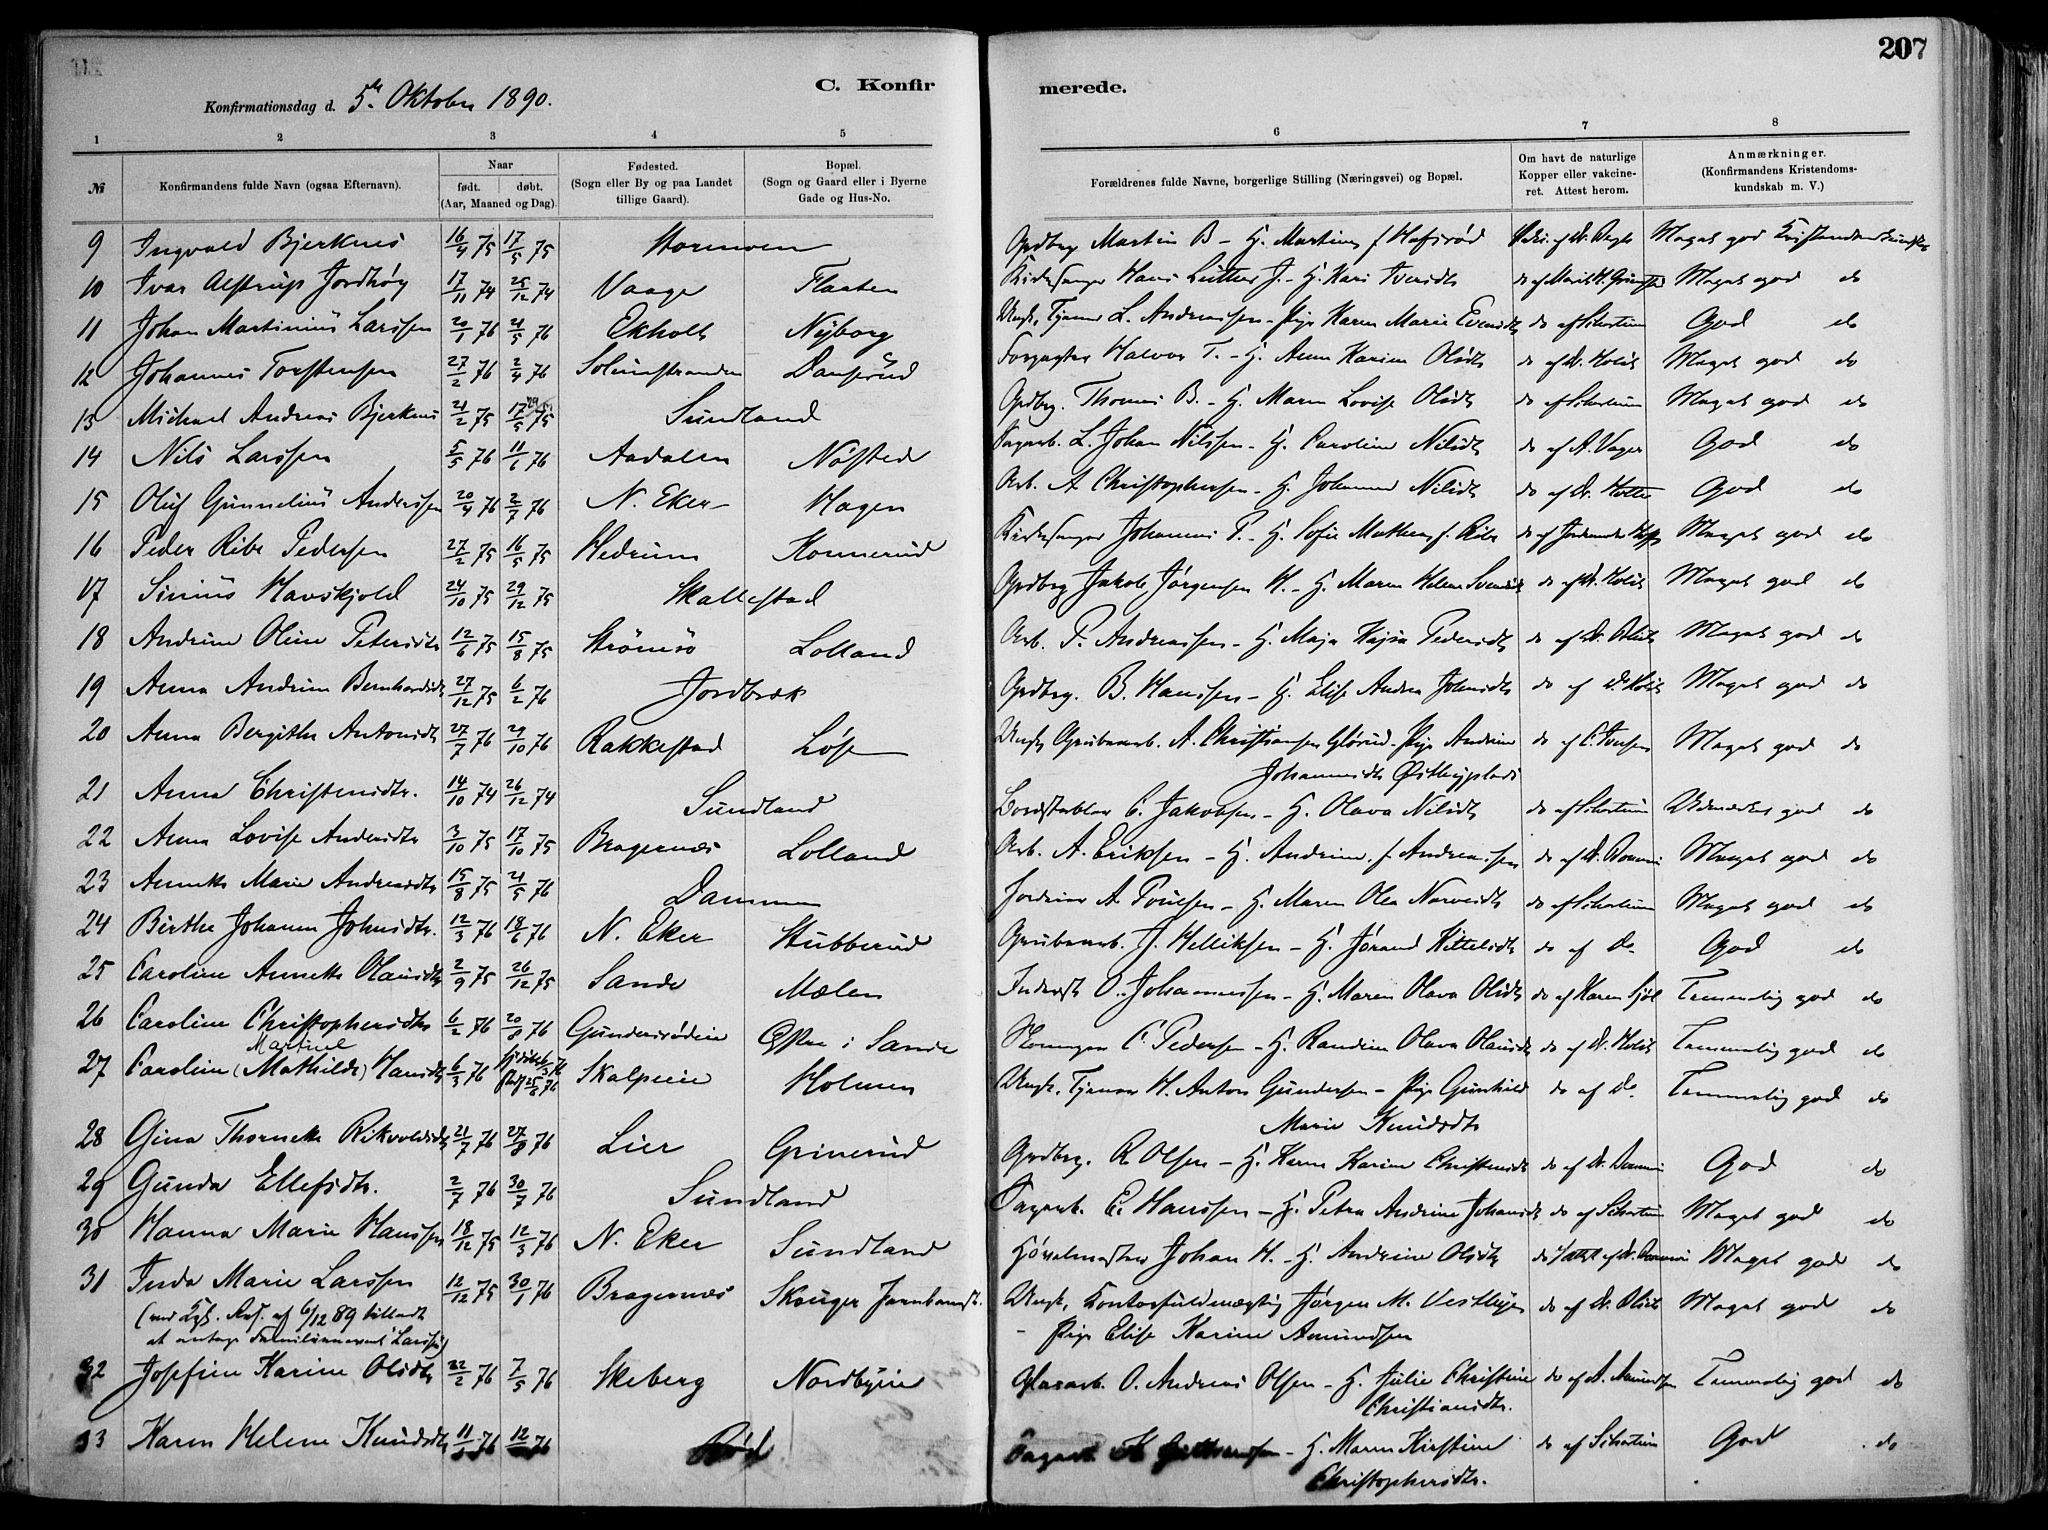 207
C. Konfirmerede.
Konfirmationsdag d. 5te Oktober 1890.
1 2 3 4 5 6 7 8
№ Konfirmandens fulde Navn (ogsaa Efternavn). Naar født. døbt. (Aar, Maaned og Dag). Fødested. (Sogn eller By og paa Landet tillige Gaard). Bopæl. (Sogn og Gaard eller i Byerne Gade og Hus-No. Forældrenes fulde Navne, borgerlige Stilling (Næringsvei) og Bopæl. Om havt de naturlige Kopper eller vakcineret. Attest herom. Anmærkninger. (Konfirmandens Kristendomskundskab m. V.)
9 Ingvald Bjerknes 16/4 75 17/5 75 Stormoen Grdbrg Martin B - H. Martine f. Hafsrød Meget god Kristendomskundskab
10 Ivar Alstrup Jordhøy 17/11 74 25/12 74 Vaage Flaaten Kirkesanger Hans Luther J. - H. Kari Iversdtr Meget god do
11 Johan Martinius Larssen 20/1 76 21/5 76 Ekholt Nyborg Ungk. Tjener L. Andreassen - Pige Karen Marie Evensdtr do af Schartum God do
12 Johannes Torstensen 27/2 76 2/4 76 Solumstranden Dansrud Halvor T. - H. Anna Karine Olsdtr do af Dr. Holst Meget god do
13 Michael Andreas Bjerknes 21/2 75 17/5 75 Sundland Grdbrg. Thomas B. - H. Maren Lovise Olsdtr do af Schartum Meget god do
14 Nils Larssen 5/5 76 11/6 76 Aadalen Nøsted Sagarb. L. Johan Nilssen - H. Caroline Nilsdtr do af A. Vager God do
15 Oluf Gunnelius Anderssen 20/4 76 2/7 76 N. Eker Hagen Arb. A Christophersen - H. Johanne Nilsdtr do af Dr. Holter God do
16 Peder Ribe Pedersen 27/2 75 16/5 75 Hedrum Konnerud Kirkesanger Johannes P. - H. Sofie Mathea f. Ribe Meget god do
17 Sinius Havskjold 24/10 75 29/12 75 Skallestad Grdbrg Jakob Jørgensen H. - H. Maren Helene Svensdtr do af Dr. Holst Meget god do
18 Andrine Oline Petersdtr 12/6 75 15/8 75 Strømsø Lolland Arb. P. Andreassen - H. Maja Kajsa Pedersdtr do af Dr. Meget god do
19 Anna Andrine Bernhardsdtr 27/12 75 6/2 76 Jordbræk Grdbrg. B. Hanssen - H. Elise Andrea Johnsdtr do af Dr. Holst Meget god do
20 Anna Bergithe Antonsdtr 27/7 76 29/10 76 Rakkestad Løse Ungk. Grubearb. A. Christiansen Glørud - Pige Andrine Johannesdtr do af C. Iversen Meget god do
21 Anna Christensdtr. 14/10 74 26/12 74 Sundland Bordstabler C. Jakobsen - H. Olava Nilsdtr do af Schartum Udmerket god do
22 Anna Lovise Andersdtr 3/10 75 17/10 75 Bragernæs Lolland Arb. A. Eriksen - H. Andrine f. Andreassen Meget god do
23 Annette Marie Andersdtr 15/8 75 21/5 76 Dammen A. Poulsen - H. Maren Olea Narvesdtr do af Schartum Meget god do
24 Birthe Johanne Johnsdtr. 12/3 76 18/6 76 N. Eker Stubberud Grubearb. J. Helliksen - H. Jørand Kittelsdtr do af Do God do
25 Caroline Annette Olausdtr 2/9 75 26/12 75 Sande Mælen Inderst O. Johannessen - H. Maren Olava Olsdtr do af Karen Temmelig god do
26 Caroline Christophersdtr 6/2 76 20/8 76 Gundersrødeie i Sande C. Pedersen - H. Randine Olava Olausdtr do af Dr. Holst Temmelig god do
27 Caroline (Mathilde) Martine Hansdtr 6/3 76 Skalpeie Holmen Ungk. Tjener H. Anton Gundersen - Pige Gunhild Marie Knudsdtr do af Do. Temmelig god do
28 Gina Thorneth Rikvoldsdtr 21/7 76 27/8 76 Lier Grinerud Grdbrg. R. Olsen - H. Karen Karine Christensdtr God do
29 Gunda Ellefsdtr. 2/7 76 30/7 76 Sundland Sagarb. E. Hanssen - H. Petra Andrine Johansdtr do af Schartum Meget god do
30 Hanna Marie Hanssen 18/12 75 12/3 76 N. Eker Sundland Johan H. - H. Andrine Olsdtr Meget god do
31 Inda Marie Larssen 12/12 75 30/1 76 Bragernæs Skouger Jernbanest. Ungk. Kontorfuldmægtig Jørgen M. Vestbye - Pige Elise Karine Amundsen Meget god do
(ved Kgl. Res. af 6/12 89 tilladt
at antage Familienavnet Larssen)
32 Josefine Karine Olsdtr 22/2 76 7/5 76 Skeberg Nordbyeie Glasarb. O. Andreas Olsen - H. Julie Christine Christiansdtr. do af A. Amundsen Temmelig god do
33 Karen Helene Knudsdtr 76 76 Rød Sagarb. - H. Maren Kirstine Christophersdtr. do af Schartum God do